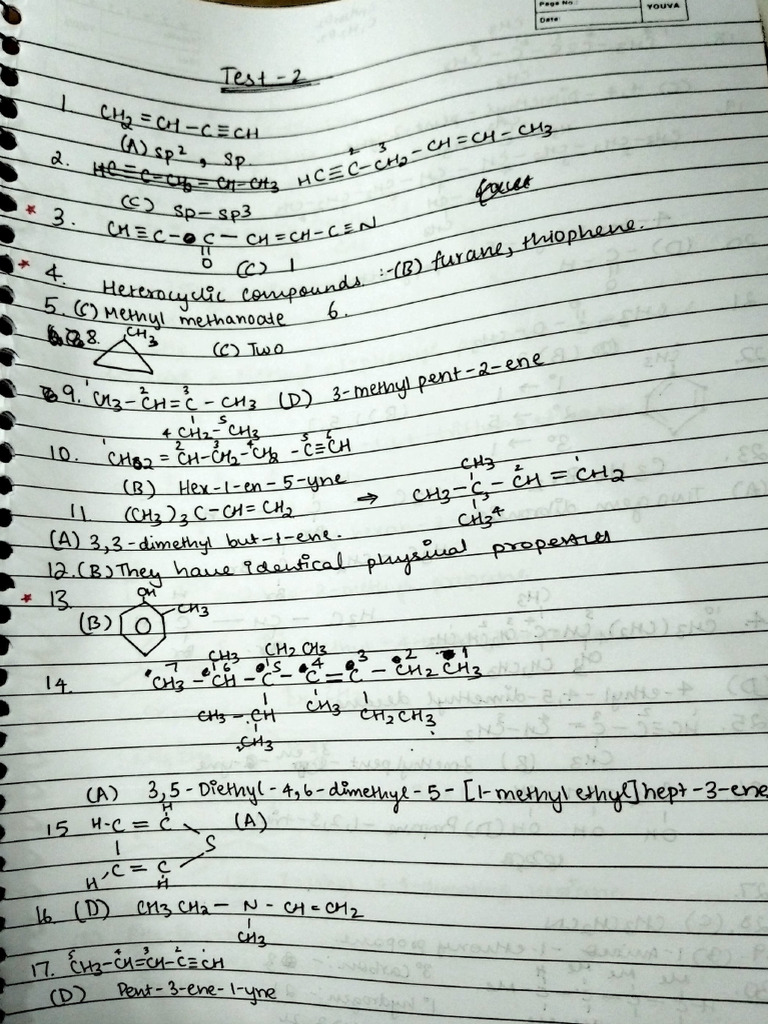 Page No.:
Date:
YOUVA
Test-2
1. CH2=CH-C≡CH
(A) sp2, sp
2. HC≡C-CH2-CH=CH-CH3
(C) sp-sp3
3. CH≡C-C-CH=CH-C≡N
O (C) 1
4. Heterocyclic compounds :-(B) furane, thiophene.
5. (C) Methyl methanoate 6.
8. CH3 (C) Two
9. CH3-CH=C-CH3 (D) 3-methyl pent-2-ene
CH2-CH3
10. CH2=CH-CH2-CH2-C≡CH
(B) Hex-1-en-5-yne
11. (CH3)3C-CH=CH2 ⇒ CH3-C-CH=CH2
CH3
CH3
(A) 3,3-dimethyl but-1-ene.
12. (B) They have identical physical properties
13. (B) OH CH3
CH3 CH2CH3
14. CH3-CH-C-C=C-CH2CH3
CH3-CH CH3 CH2CH3
CH3
(A) 3,5-Diethyl-4,6-dimethyl-5-[1-methyl ethyl]hept-3-ene
15 H-C=C (A)
H
S
H C=C
H
16. (D) CH3CH2-N-CH=CH2
CH3
17. CH3-CH=CH-C≡CH
(D) Pent-3-ene-1-yne